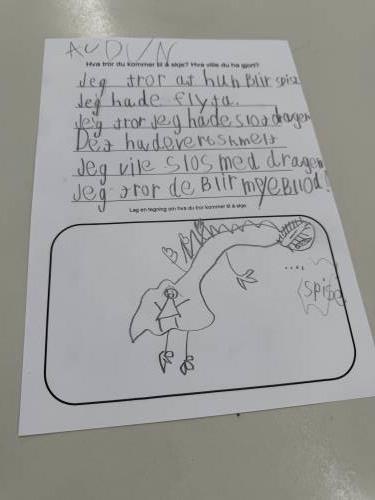 AUDUN
Hva tror du kommer til å skje? Hva ville du ha gjort?
Jeg tror at hun Blir spist
Jeg hade flyta.
Jeg tror Jeg hade slost dragen
Det hadevert skmelt
Jeg vile slos med dragen
Jeg tror de Blir mye Blod!
Lag en tegning om hva du tror kommer til å skje.
....
spise